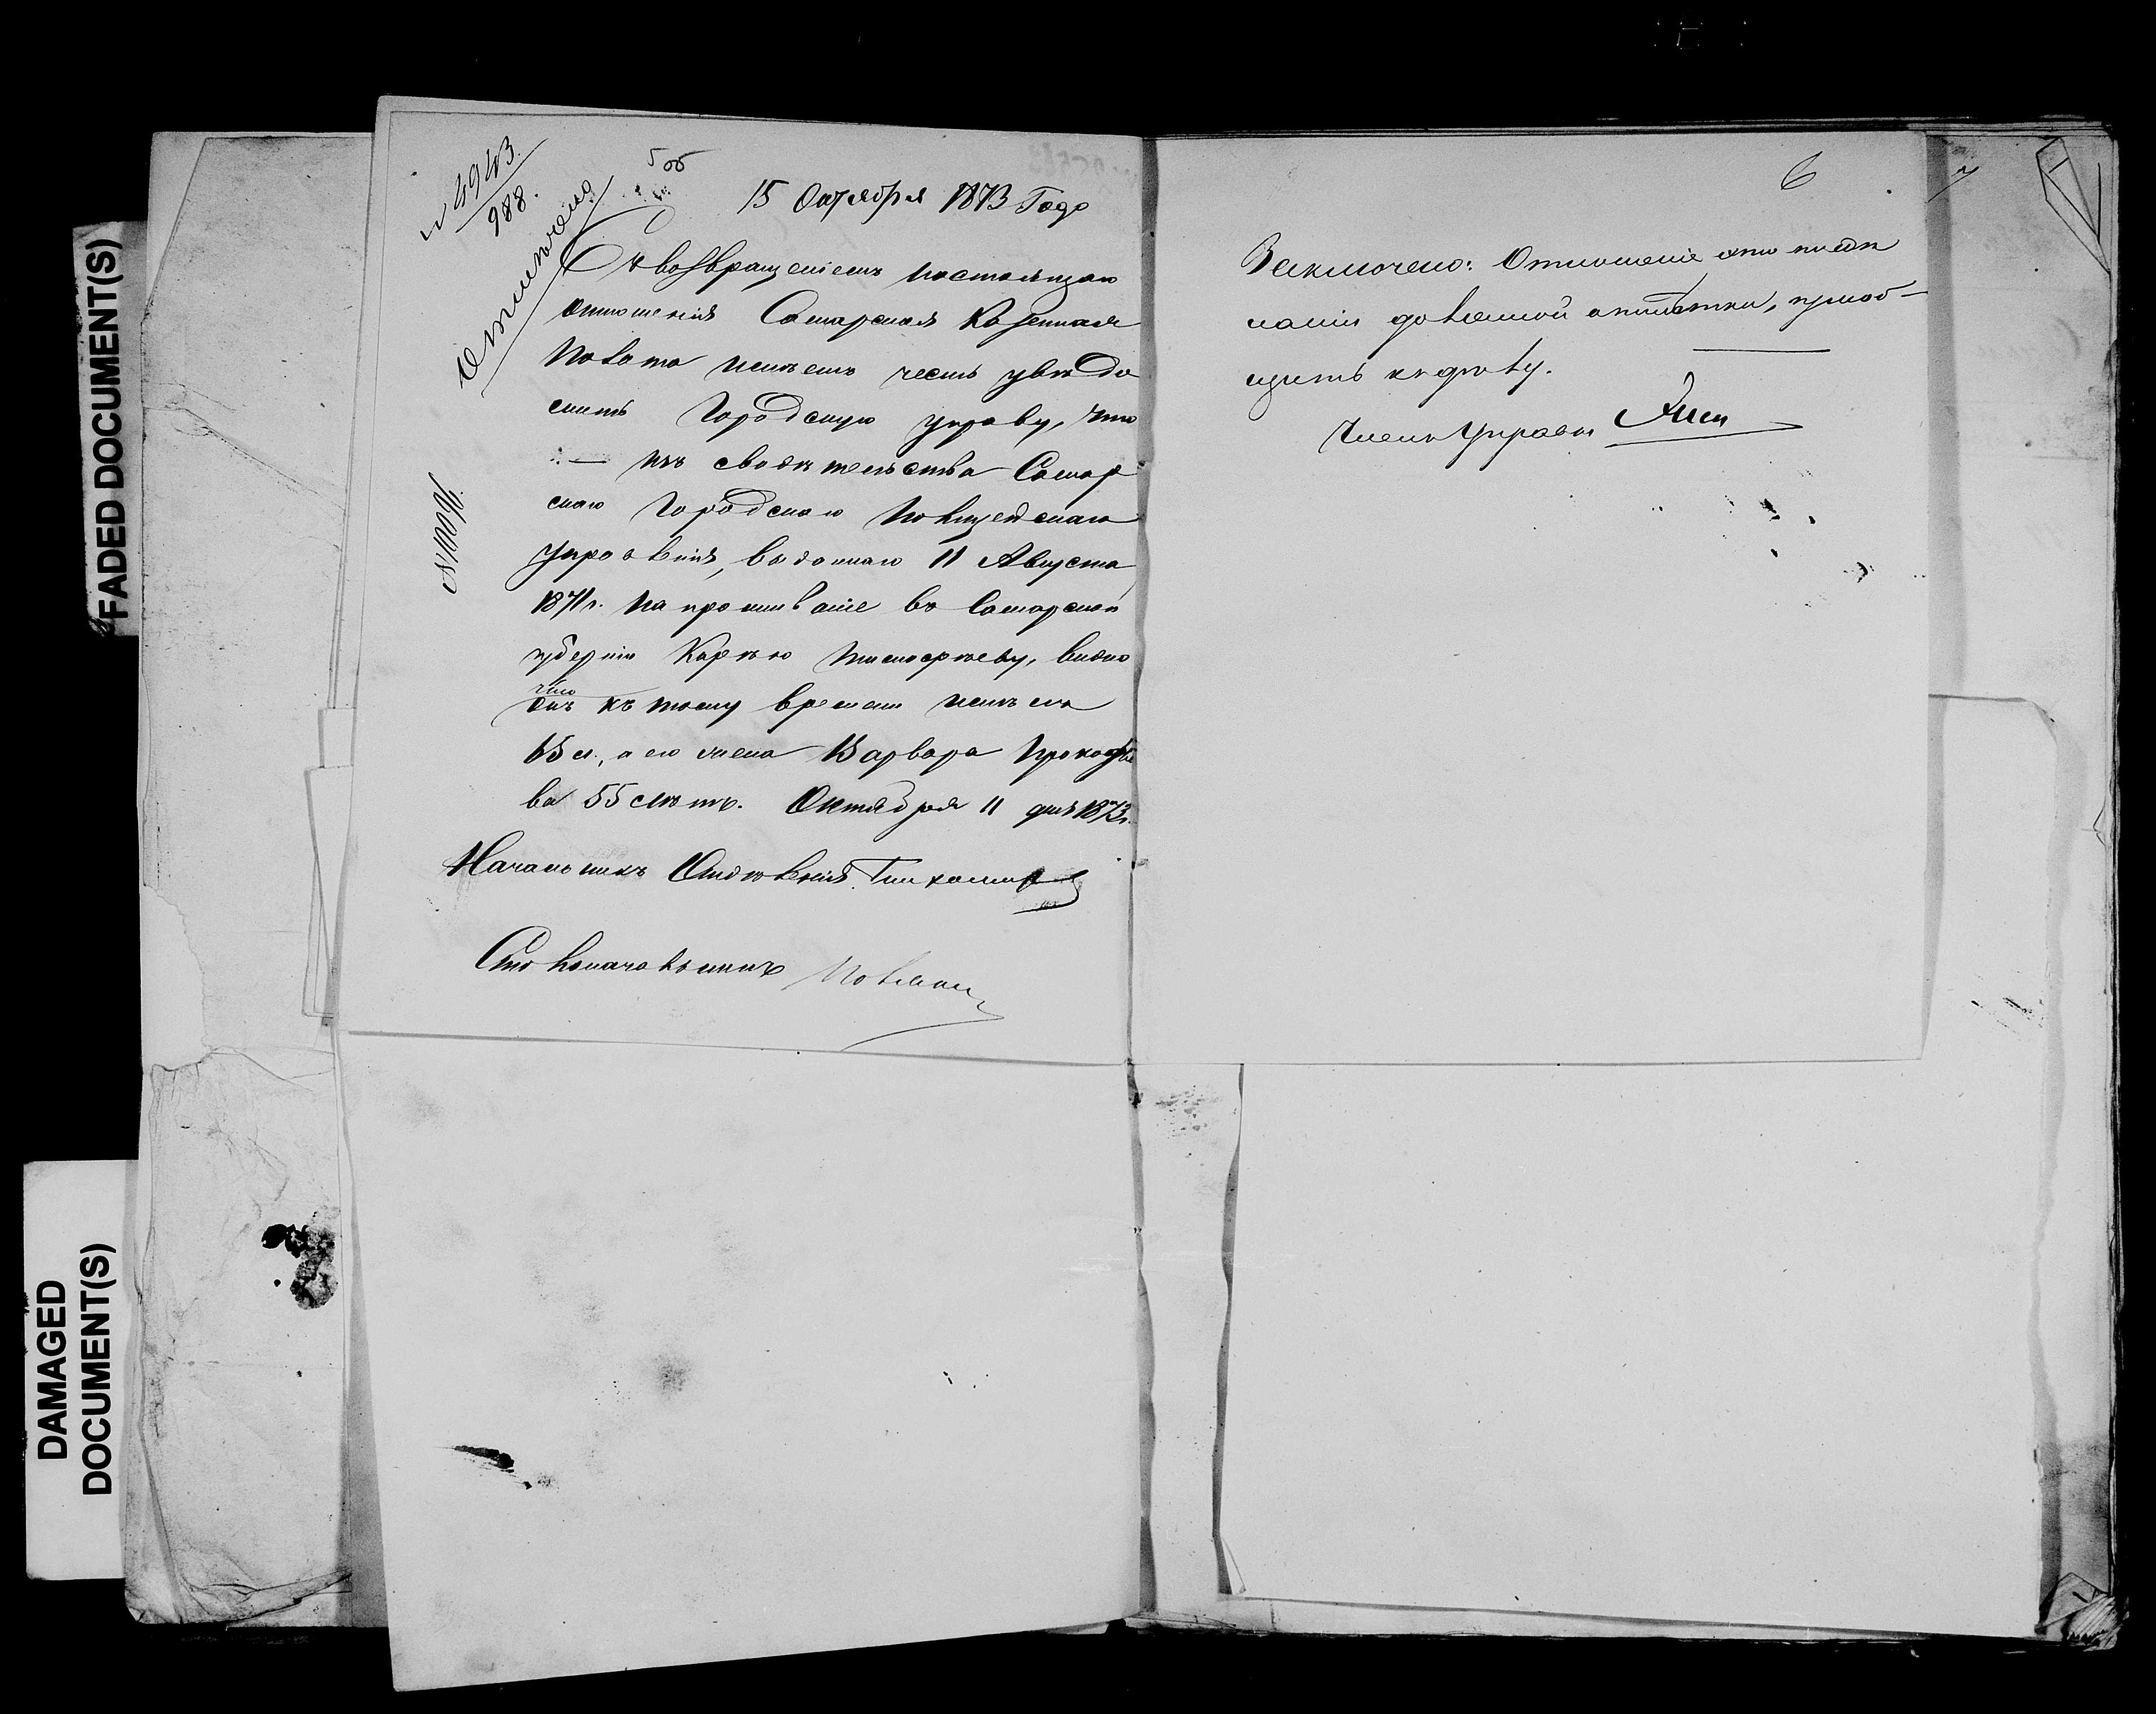 FADED DOCUMENT(S)
DAMAGED
DOCUMENT(S)
№ 4943.
988.
5 об
15 Октября 1873 Года
Съ возвращеніемъ настоящаго
отношенія Самарская Казенная
Палата имѣетъ честь увѣдо
мить Городскую Управу, что
изъ свидѣтельства Самар
скаго Городскаго Полицейскаго
Управленія, выданнаго 11 Августа
1871 г. на проживаніе въ Самарской
губерніи Карпѣю, видно
что
онъ къ тому времени имѣлъ
65 л., а его жена Варвара Прокофье
ва 55 лѣтъ. Октября 11 дня 1873 г.
Начальникъ Отдѣленія Тихомир
Столоначальникъ
6
7
Заключено: Отношеніе это
приоб-
щить къ дѣлу.
Членъ Управы